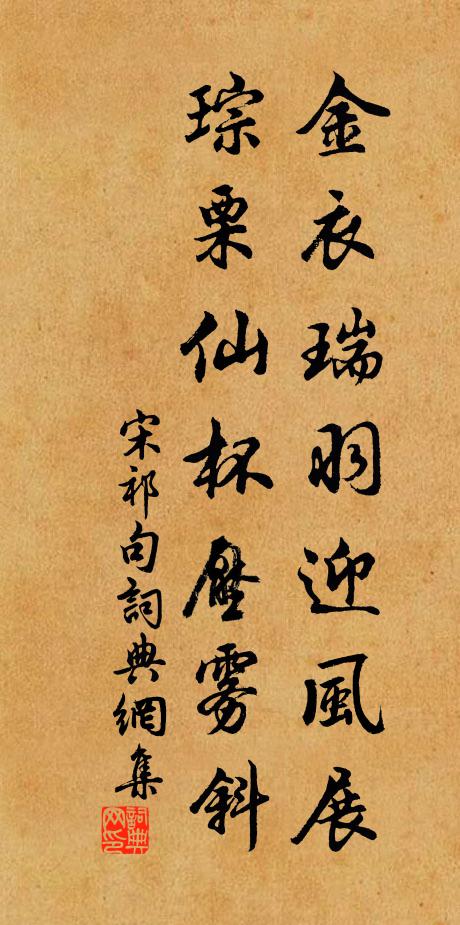 金衣瑞羽迎風展
琮栗仙杯壓霧斜
宋祁句詞典網集
詞典网印